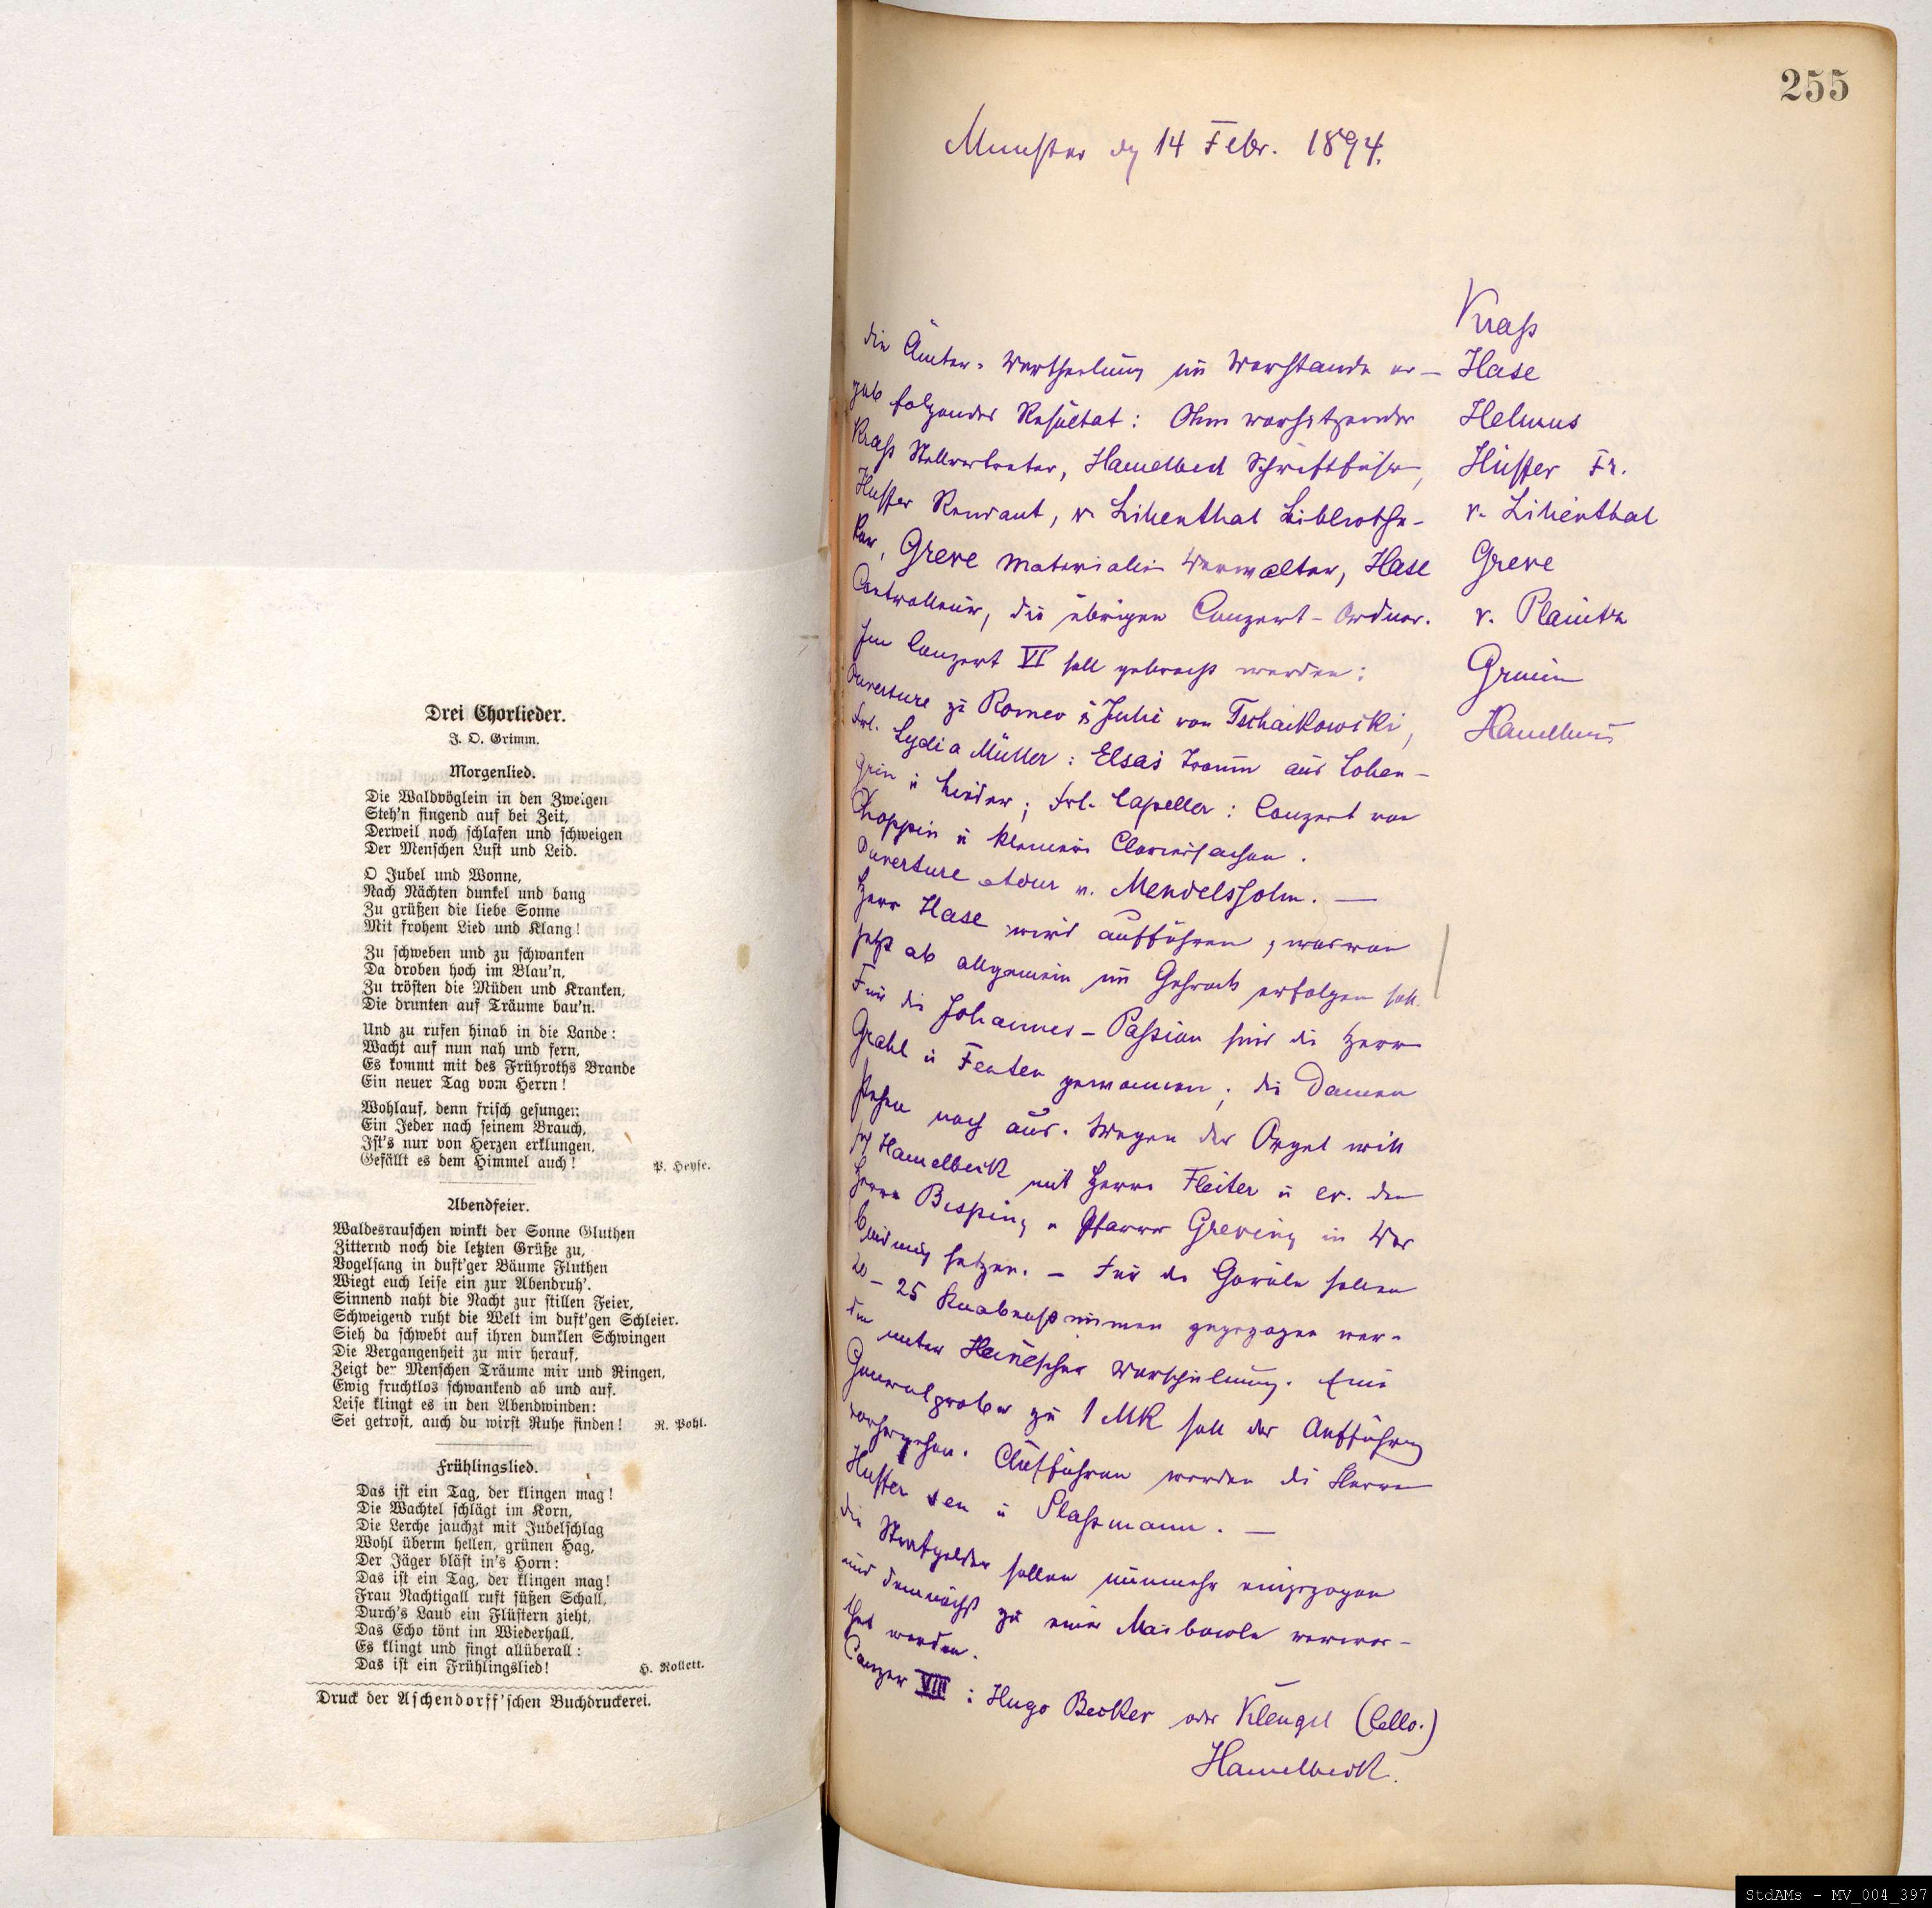 Drei Chorlieder.
J. O. Grimm.
Morgenlied.
Die Waldvöglein in den Zweigen
Steh'n singend auf bei Zeit,
Derweil noch schlafen und schweigen
Der Menschen Lust und Leid.
O Jubel und Wonne,
Nach Nächten dunkel und bang
Zu grüßen die liebe Sonne
Mit frohem Lied und Klang!
Zu schweben und zu schwanken
Da droben hoch im Blau'n,
Zu trösten die Müden und Kranken,
Die drunten auf Träume bau'n.
Und zu rufen hinab in die Lande:
Wacht auf nun nah und fern,
Es kommt mit des Frühroths Brande
Ein neuer Tag vom Herrn!
Wohlauf, denn frisch gesungen:
Ein Jeder nach seinem Brauch,
Ist's nur von Herzen erklungen,
Gefällt es dem Himmel auch!
P. Heyse.
Abendfeier.
Waldesrauschen winkt der Sonne Gluthen
Zitternd noch die letzten Grüße zu,
Vogelsang in duft'ger Bäume Fluthen
Wiegt euch leise ein zur Abendruh'.
Sinnend naht die Nacht zur stillen Feier,
Schweigend ruht die Welt im duft'gen Schleier.
Sieh da schwebt auf ihren dunklen Schwingen
Die Vergangenheit zu mir herauf,
Zeigt der Menschen Träume mir und Ringen,
Ewig fruchtlos schwankend ab und auf.
Leise klingt es in den Abendwinden:
Sei getrost, auch du wirst Ruhe finden! R. Pohl.
Frühlingslied.
Das ist ein Tag, der klingen mag!
Die Wachtel schlägt im Korn,
Die Lerche jauchzt mit Jubelschlag
Wohl überm hellen, grünen Hag,
Der Jäger bläst in's Horn:
Das ist ein Tag, der klingen mag!
Frau Nachtigall ruft süßen Schall,
Durch's Laub ein Flüstern zieht,
Das Echo tönt im Wiederhall,
Es klingt und singt allüberall:
Das ist ein Frühlingslied! H. Rollett.
Druck der Aschendorff'schen Buchdruckerei.
255
Munster 14 Febr. 1894.
Kraß
Hase
Helmus
Hüffer Fr.
v. Lilienthal
Greve
v. Plainitz
Grimm
die Ämter-Vertheilung im Vorstande er-
gab folgendes Resultat: Ohm Vorsitzender
Kraß Stellvertreter, Hamelbeck Schriftführer,
Huffer Rendant, v Lilienthal Bibliothe-
kar, Greve Materialien Verwalter, Hase
Controlleur, die übrigen Conzert-Ordner.
Im Conzert VI soll gebracht werden:
Ouverture zu Romeo u Julie von Tschaikowski,
Frl. Lydia Müller: Elsas Traum aus Lohen-
grin u Lieder; Frl. Capeller: Conzert von
Choppin u kleinere Claviersachen.
Ouverture Adur v. Mendelssohn. —
Herr Hase wird aufführen, was von
jetzt ab allgemein im Gehrock erfolgen soll.
Für die Johannes-Passion sind die Herrn
Grahl u Fenten gewonnen; die Damen
stehen noch aus. Wegen der Orgel will
sich Hamelbeck mit Herrn Fleiter u ev. den
Herrn Bisping u Pfarrer Greving in Ver
bindung setzen. — Für die Choräle sollen
20–25 Knabenstimmen zugezogen wer-
den unter Heine'scher Vorschulung. Eine
Generalprobe zu 1 MK soll der Aufführung
vorhergehen. Aufführen werden die Herren
Huffer sen u Plaßmann. —
die Strafgelder sollen nunmehr eingezogen
und demnächst zu einer Maibowle verwer-
thet werden.
Conzer VIII: Hugo Becker oder Klengel (Cello.)
Hamelbeck.
StdAMs - MV_004_397